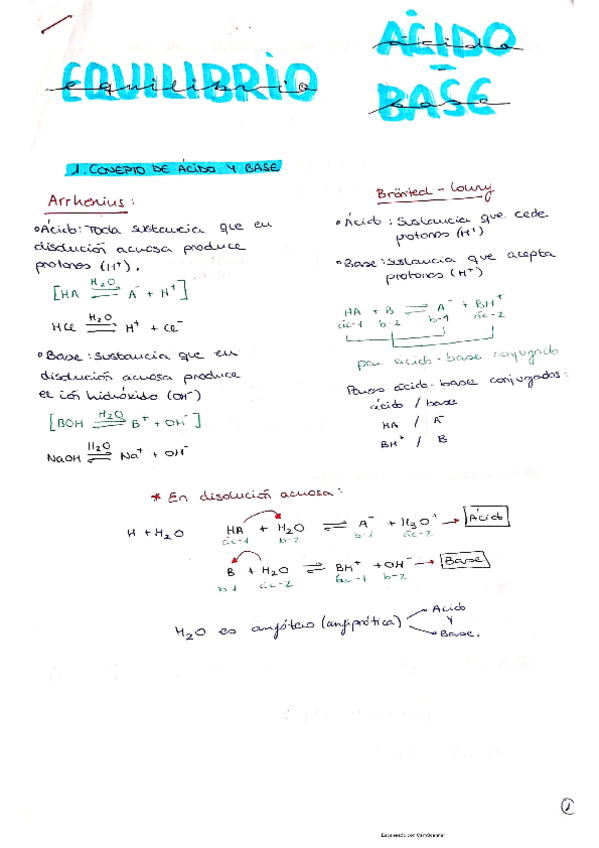 EQUILIBRIO
equilibrio
ÁCIDO
ácido
-
BASE
base
1. CONEPTO DE ÁCIDO Y BASE
Arrhenius:
Ácido: Toda sustancia que en
disolución acuosa produce
protones (H⁺).
[HA ⇌ A⁻ + H⁺] H₂O
HCl ⇌ H⁺ + Cl⁻ H₂O
Base: sustancia que en
disolución acuosa produce
el ión hidróxido (OH⁻)
[BOH ⇌ B⁺ + OH⁻] H₂O
NaOH ⇌ Na⁺ + OH⁻ H₂O
Brönted - Lowry
Ácido: Sustancia que cede
protones (H⁺)
Base: Sustancia que acepta
protones (H⁺)
HA + B ⇌ A⁻ + BH⁺
ác-1 b-2 b-1 ác-2
par ácido-base conjugado
Pares ácido-base conjugados:
ácido / base
HA / A⁻
BH⁺ / B
* En disolución acuosa:
H + H₂O
HA + H₂O ⇌ A⁻ + H₃O⁺ → Ácido
ác-1 b-2 b-1 ác-2
B + H₂O ⇌ BH⁺ + OH⁻ → Base
b-1 ác-2 ác-1 b-2
H₂O es anfótero (anfiprótica)
Acido
Y
Base.
1
Escaneado con CamScanner